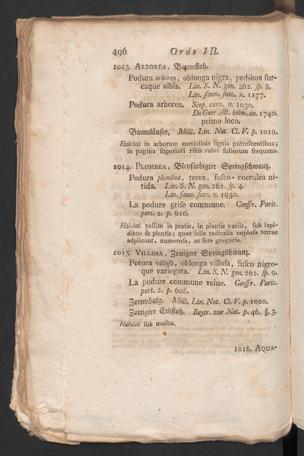 496 Ordo VII.
1013. ARBOREA, Baumfloh.
Podura arborea, oblonga nigra, pedibus fur-
caque albis. Lin. S. N. gen. 262. sp. 8.
Lin. faun. suec. n.
Podura arborea. Scop. carn. n. 1030.
De Geer Act. holm. an. 1740.
primo loco.
Baumhüpfer. Müll. Lin. Nat. Cl. V. p. 1019.
Habitat in arborum corticibus lignis putrescentibus;
in pagina superiori ribis rubri foliorum frequens.
1014. PLUMBEA, Bleyfärbiger Springschwanz.
Podura plumbea, teres, fusco-coerulea ni-
tida. Lin. S. N. gen. 262. sp. 4.
Lin. faun. suec. n. 1930.
La podure grise commune. Geoffr. Paris.
part. 2. p. 610.
Habitat passim in pratis, in plantis variis, sub lapi-
dibus & plantis; quae solis radiis terrae
numerosa, ac fere gregaria.
1015. VILLOSA, Zottiger Springschwanz.
Potura villosa, oblonga villosa, fusco nigro-
que variegata. Lin. S. N. gen. 262. sp. 9.
La podure commune velue. Geoffr. Paris-
part. 2. p. 608.
Müll. Lin. Nat. Cl. V. p. 1020.
Zottiger Erdfloh. Beytr. zur Nat. p. 46. §. 3.
Habitat sub musco.
1016. AQUA-